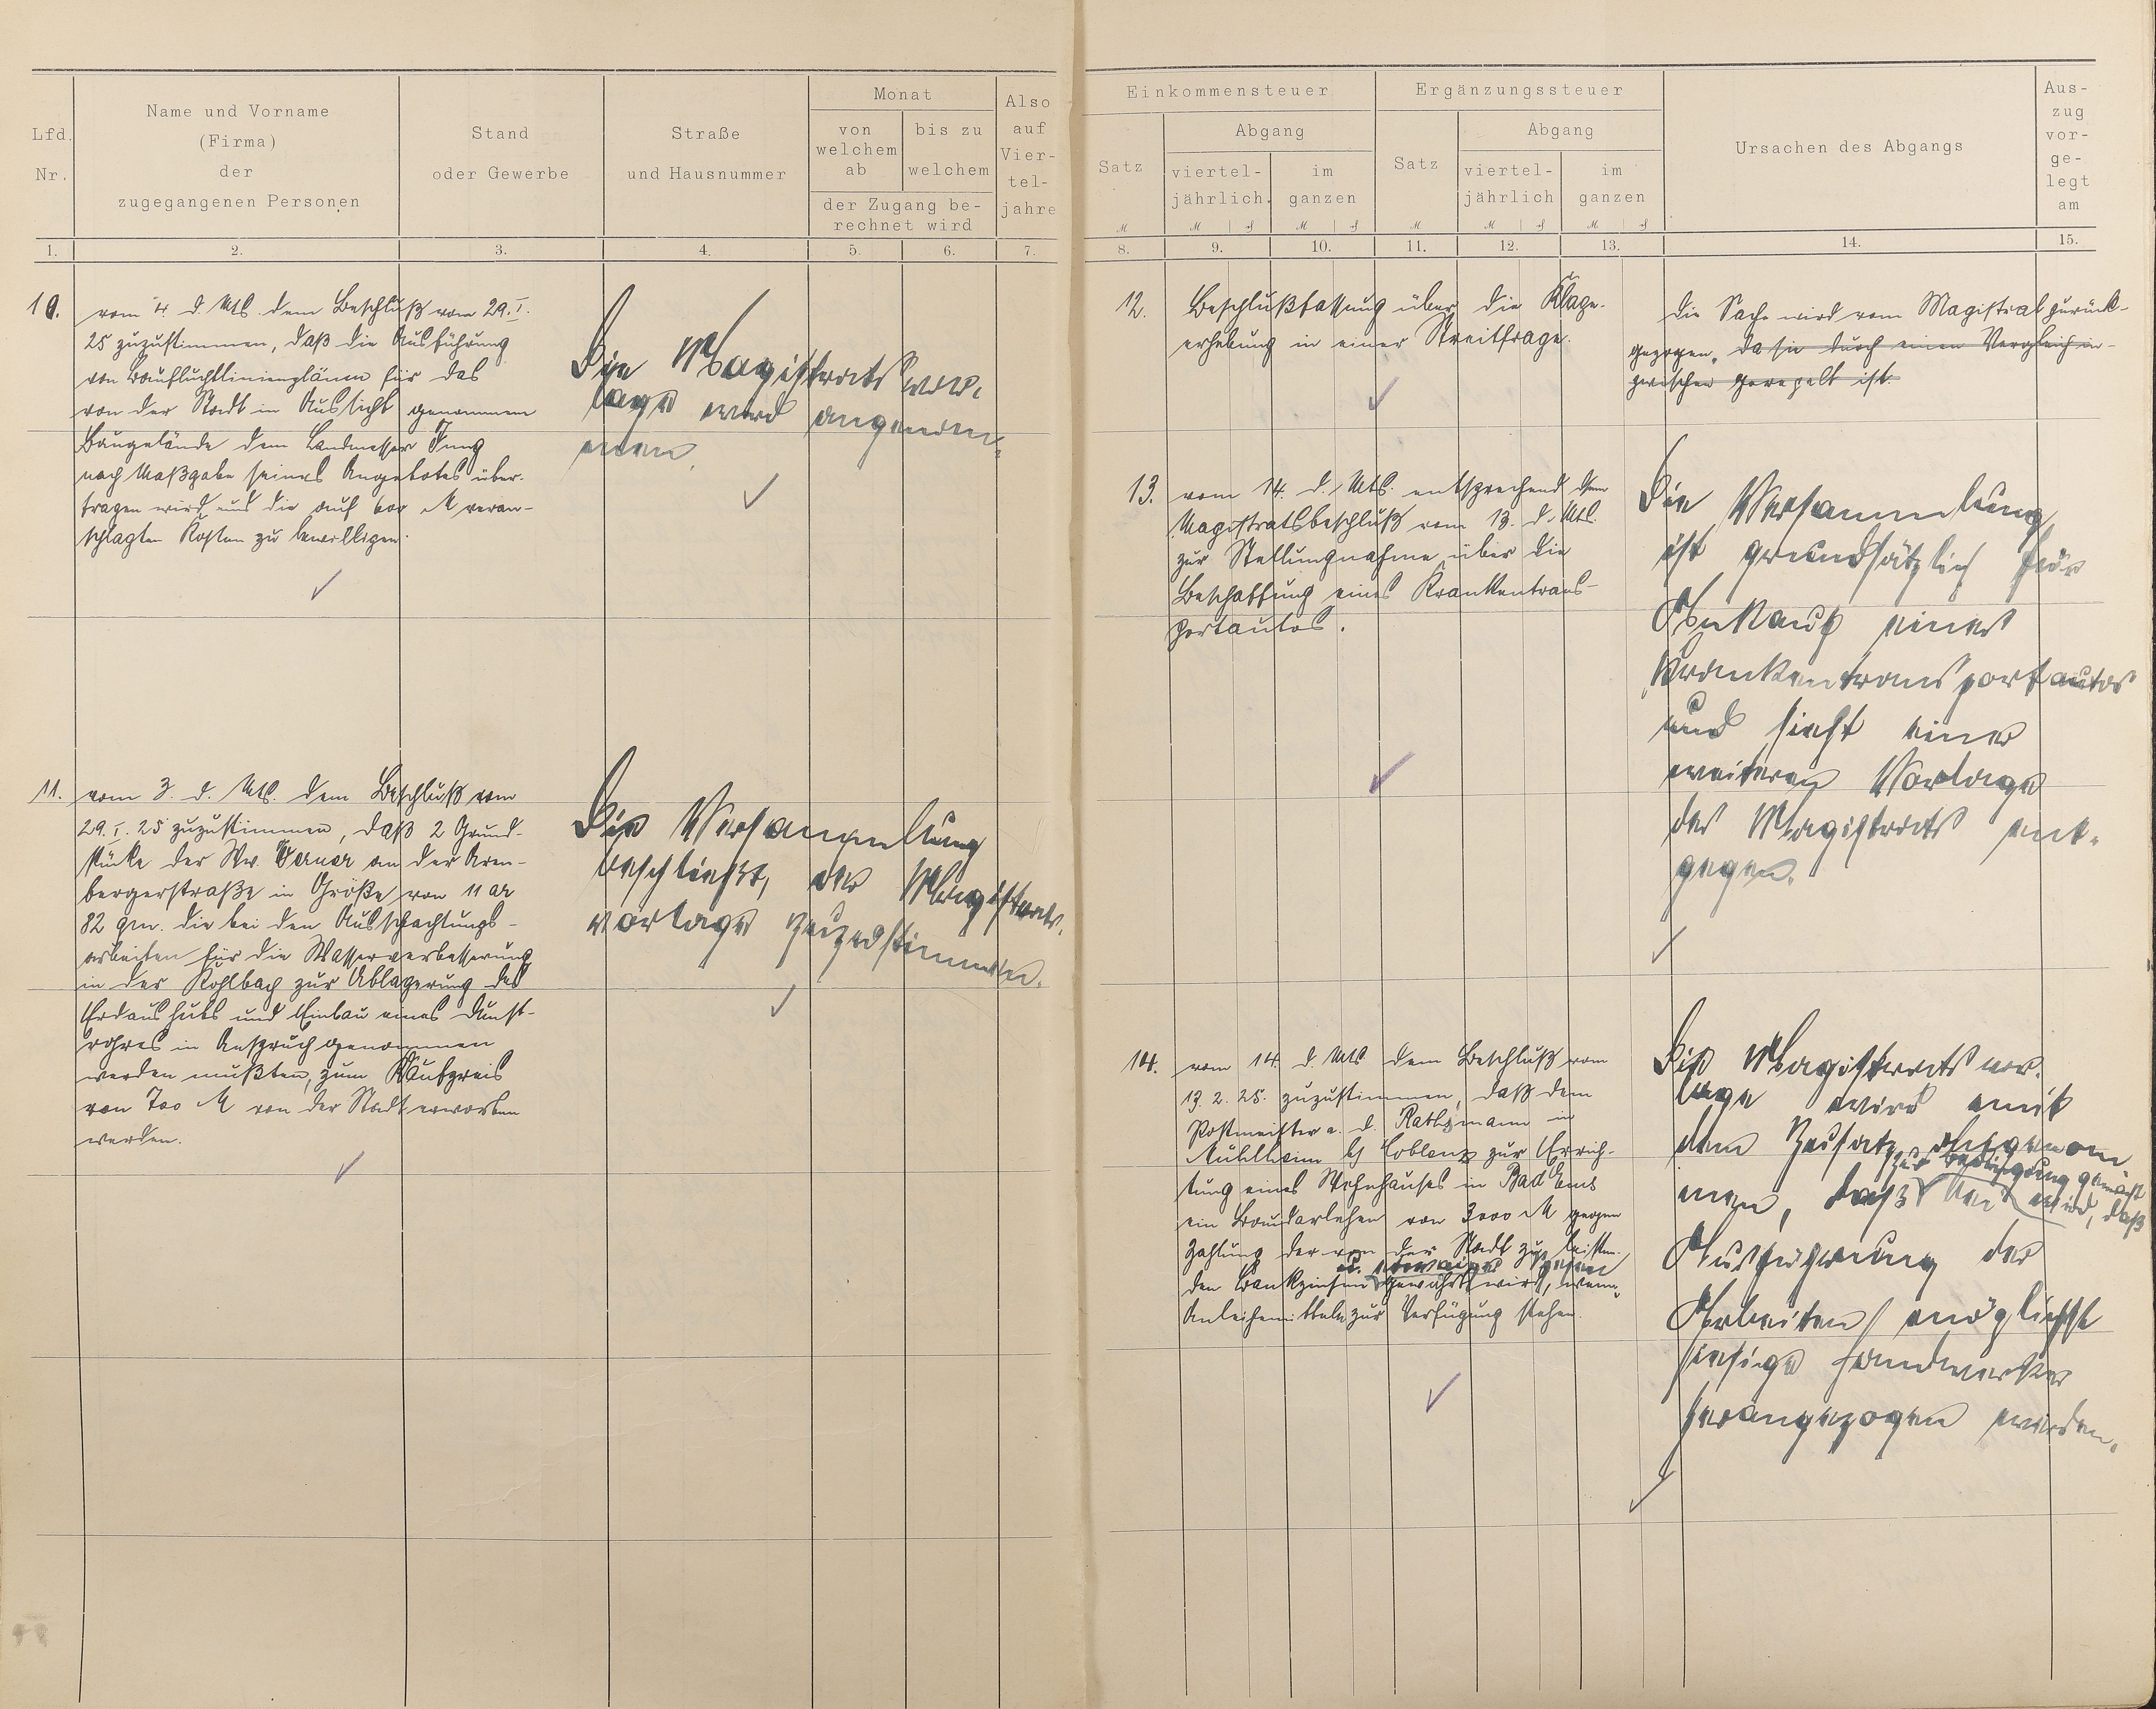 Lfd. Nr.
Name und Vorname
(Firma)
der
zugegangenen Personen
Stand
oder Gewerbe
Straße
und Hausnummer
Monat
von welchem ab
bis zu welchem
der Zugang be-
rechnet wird
Also auf Vier-tel-jahre
1. 2. 3. 4. 5. 6. 7.
10. vom 4. d. Mts. dem Beschluß vom 29. I.
25 zuzustimmen, daß die Ausführung
von Baufluchtlinienplänen für das
von der Stadt in Aussicht genommene
Baugelände dem Landmesser Jung
nach Maßgabe seines Angebotes über-
tragen wird und die auf 600 M veran-
schlagten Kosten zu bewilligen.
Die Magistratsvor-
lage wird angenom-
men.
11. vom 3. d. Mts. dem Beschluß vom
29. I. 25 zuzustimmen, daß 2 Grund-
stücke der Ww. an der Aren-
bergerstraße in Größe von 11 ar
82 qm. die bei den Ausschachtungs-
arbeiten für die Wasserverbesserung
in der Kohlbach zur Ablagerung des
Erdaushubs und Einbau eines Dunst-
rohres in Anspruch genommen
werden mußten, zum Kaufpreis
von 700 M von der Stadt erworben
werden.
Die Versammlung
beschließt, der Magistrats-
vorlage zuzustimmen.
Einkommensteuer
Satz
Abgang
viertel-jährlich.
im ganzen
Ergänzungssteuer
Satz
Abgang
viertel-jährlich
im ganzen
Ursachen des Abgangs
Aus-zug vor-ge-legt am
M M ₰ M ₰ M M ₰ M ₰
8. 9. 10. 11. 12. 13. 14. 15.
12. Beschlußfassung über die Klage-
erhebung in einer Streitfrage.
Die Sache wird vom Magistrat zurück-
gezogen, da sie durch einen Vergleich in-
zwischen geregelt ist.
13. vom 14. d. Mts. entsprechend dem
Magistratsbeschluß vom 13. d. Mts.
zur Stellungnahme über die
Beschaffung eines Krankentrans-
portautos.
Die Versammlung
ist grundsätzlich für
Ankauf eines
Krankentransportautos
und sieht einer
weiteren Vorlage
des Magistrats ent-
gegen.
14. vom 14. d. Mts dem Beschluß vom
13. 2. 25. zuzustimmen, daß dem
Postmeister a. d. Rathsmann in
b/ Coblenz zur Errich-
tung eines Wohnhauses in Bad Ems
ein Baudarlehen von 3000 M gegen
Zahlung der von der Stadt zu leisten-
u. etwaige Spesen
den Bankzinsen gewährt wird, wenn
Anleihemitteln zur Verfügung stehen.
Die Magistratsvor-
lage wird mit
dem Zusatz angenom-
zur Bedingung gemacht
men, daß bei wird, daß
Ausführung der
Arbeiten möglichst
hiesige Handwerker
herangezogen werden.